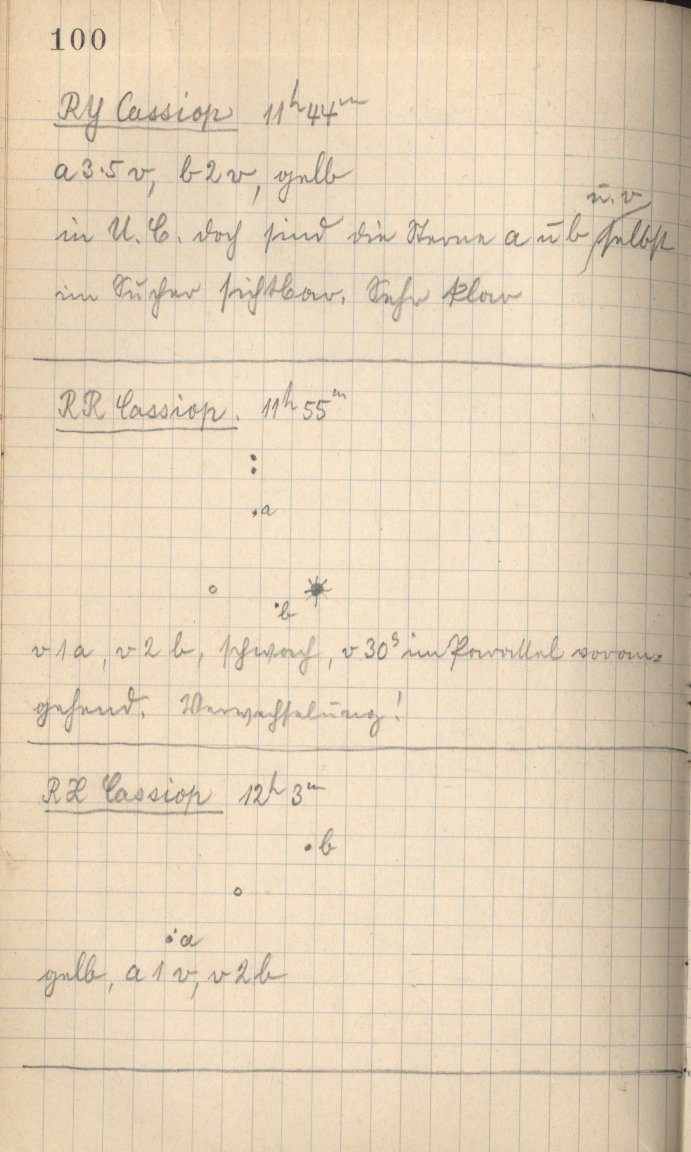 100
RY Cassiop 11h 44m
a 3·5 v, b 2 v, gelb
ü. v
in U. C. doch sind die Sterne a ü b selbst
im Sucher sichtbar. Sehr klar
RR Cassiop. 11h 55m
a
b
v 1 a, v 2 b, schwach, v 30s im Parallel voran=
gehend. Verwechselung!
RX Cassiop 12h 3m
b
a
gelb, a 1 v, v 2 b